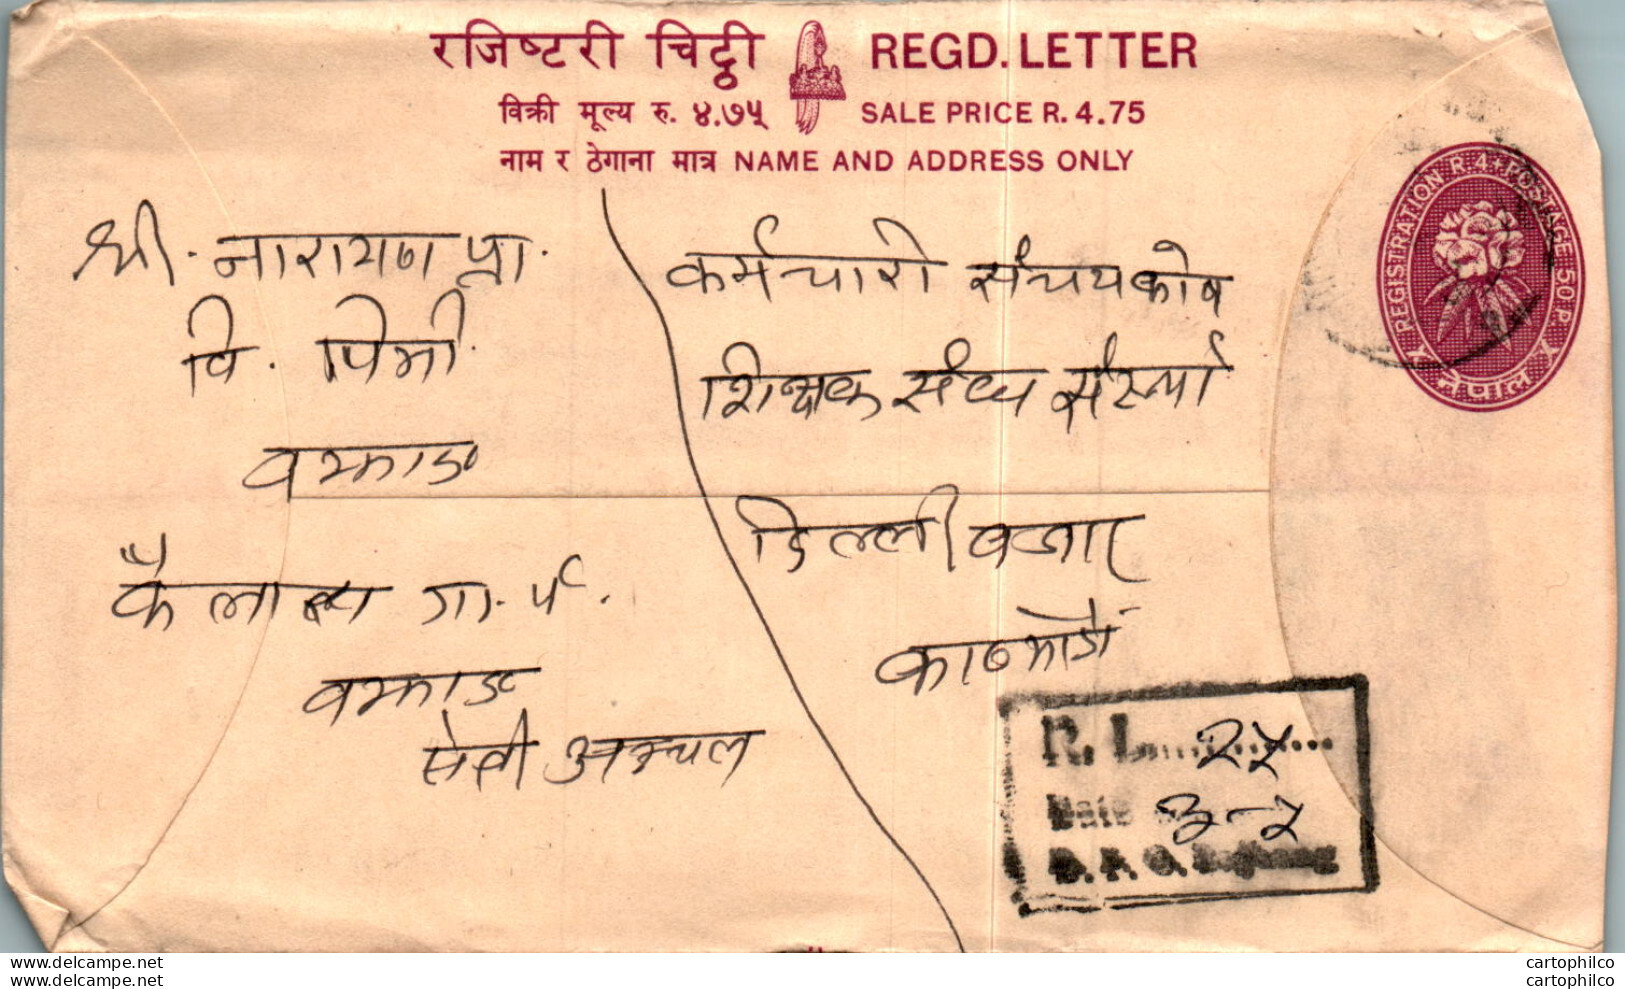 रजिष्टरी चिट्ठी REGD. LETTER
विक्री मूल्य रु. ४.७५ SALE PRICE R. 4.75
नाम र ठेगाना मात्र NAME AND ADDRESS ONLY
REGISTRATION R.4+POSTAGE 50P
नेपाल
श्री. नारायण प्रा.
वि.
वझाङ
कैलाश गा. पं.
वझाङ
सेती अञ्चल
कर्मचारी संचयकोष
शिक्षक संघ संस्था
डिल्लीबजार
काठमाडौं
R. L. २५
Date ३-२
D. P. O. Bajhang
www.delcampe.net
www.delcampe.net
cartophilco
cartophilco